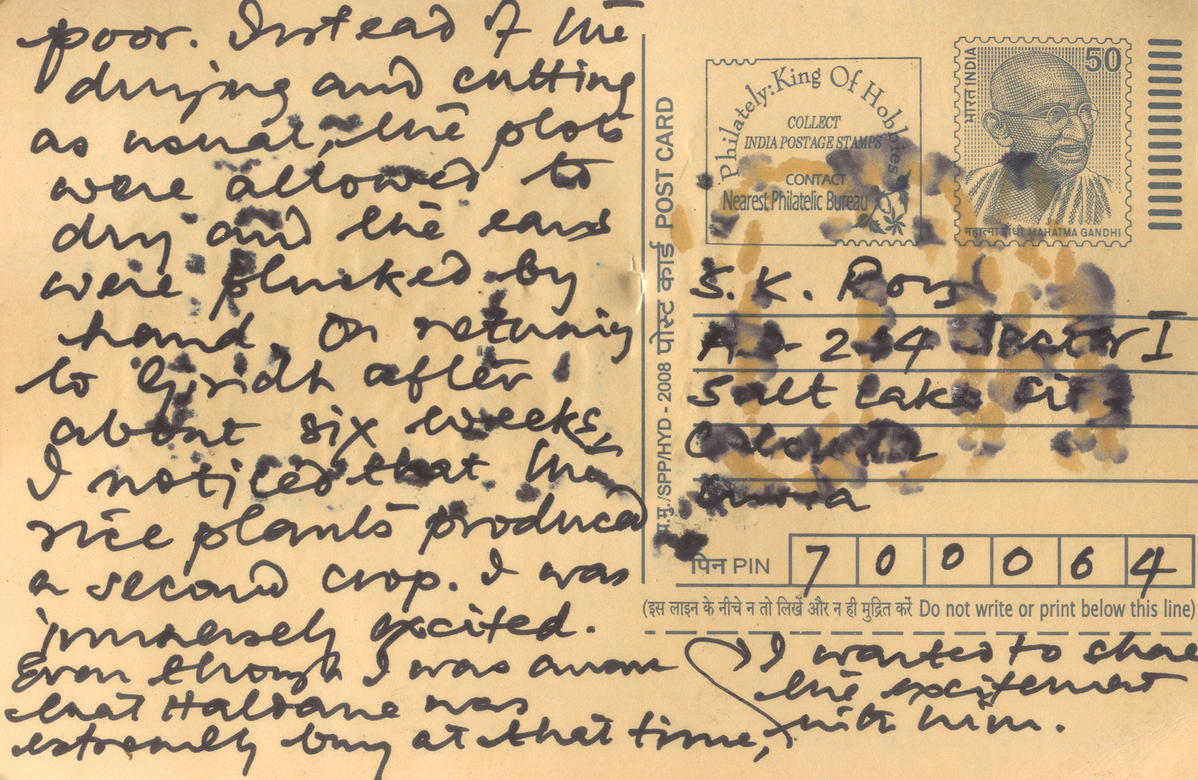 poor. Instead of the
drying and cutting
as usual, the plots
were allowed to
dry and the ears
were plucked by
hand. On returning
to Giridh after
about six weeks,
I noticed that the
rice plants produced
a second crop. I was
immensely excited.
Even though I was aware
that Haldane was
extremely busy at that time,
I wanted to share
the excitement
with him.
Philately: King Of Hobbies
COLLECT
INDIA POSTAGE STAMPS
CONTACT
Nearest Philatelic Bureau
भारत INDIA
50
महात्मा गांधी MAHATMA GANDHI
म.मु./SPP/HYD - 2008 पोस्ट कार्ड POST CARD
S. K. Roy
AD- 234 Sector I
Salt Lake City
Calcutta
India
पिन PIN 700064
(इस लाइन के नीचे न तो लिखें और न ही मुद्रित करें Do not write or print below this line)